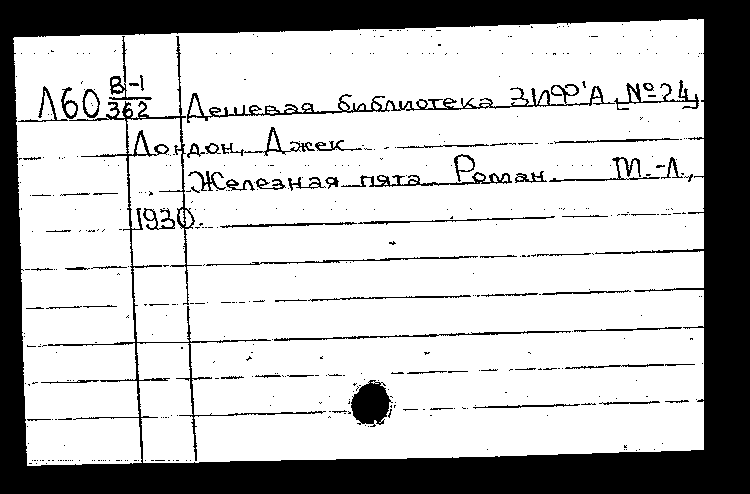 Л60 В-1/362 Дешевая библиотека ЗИФ'А, №24,
Лондон, Джек
Железная пята. Роман. М.-Л.,
1930.